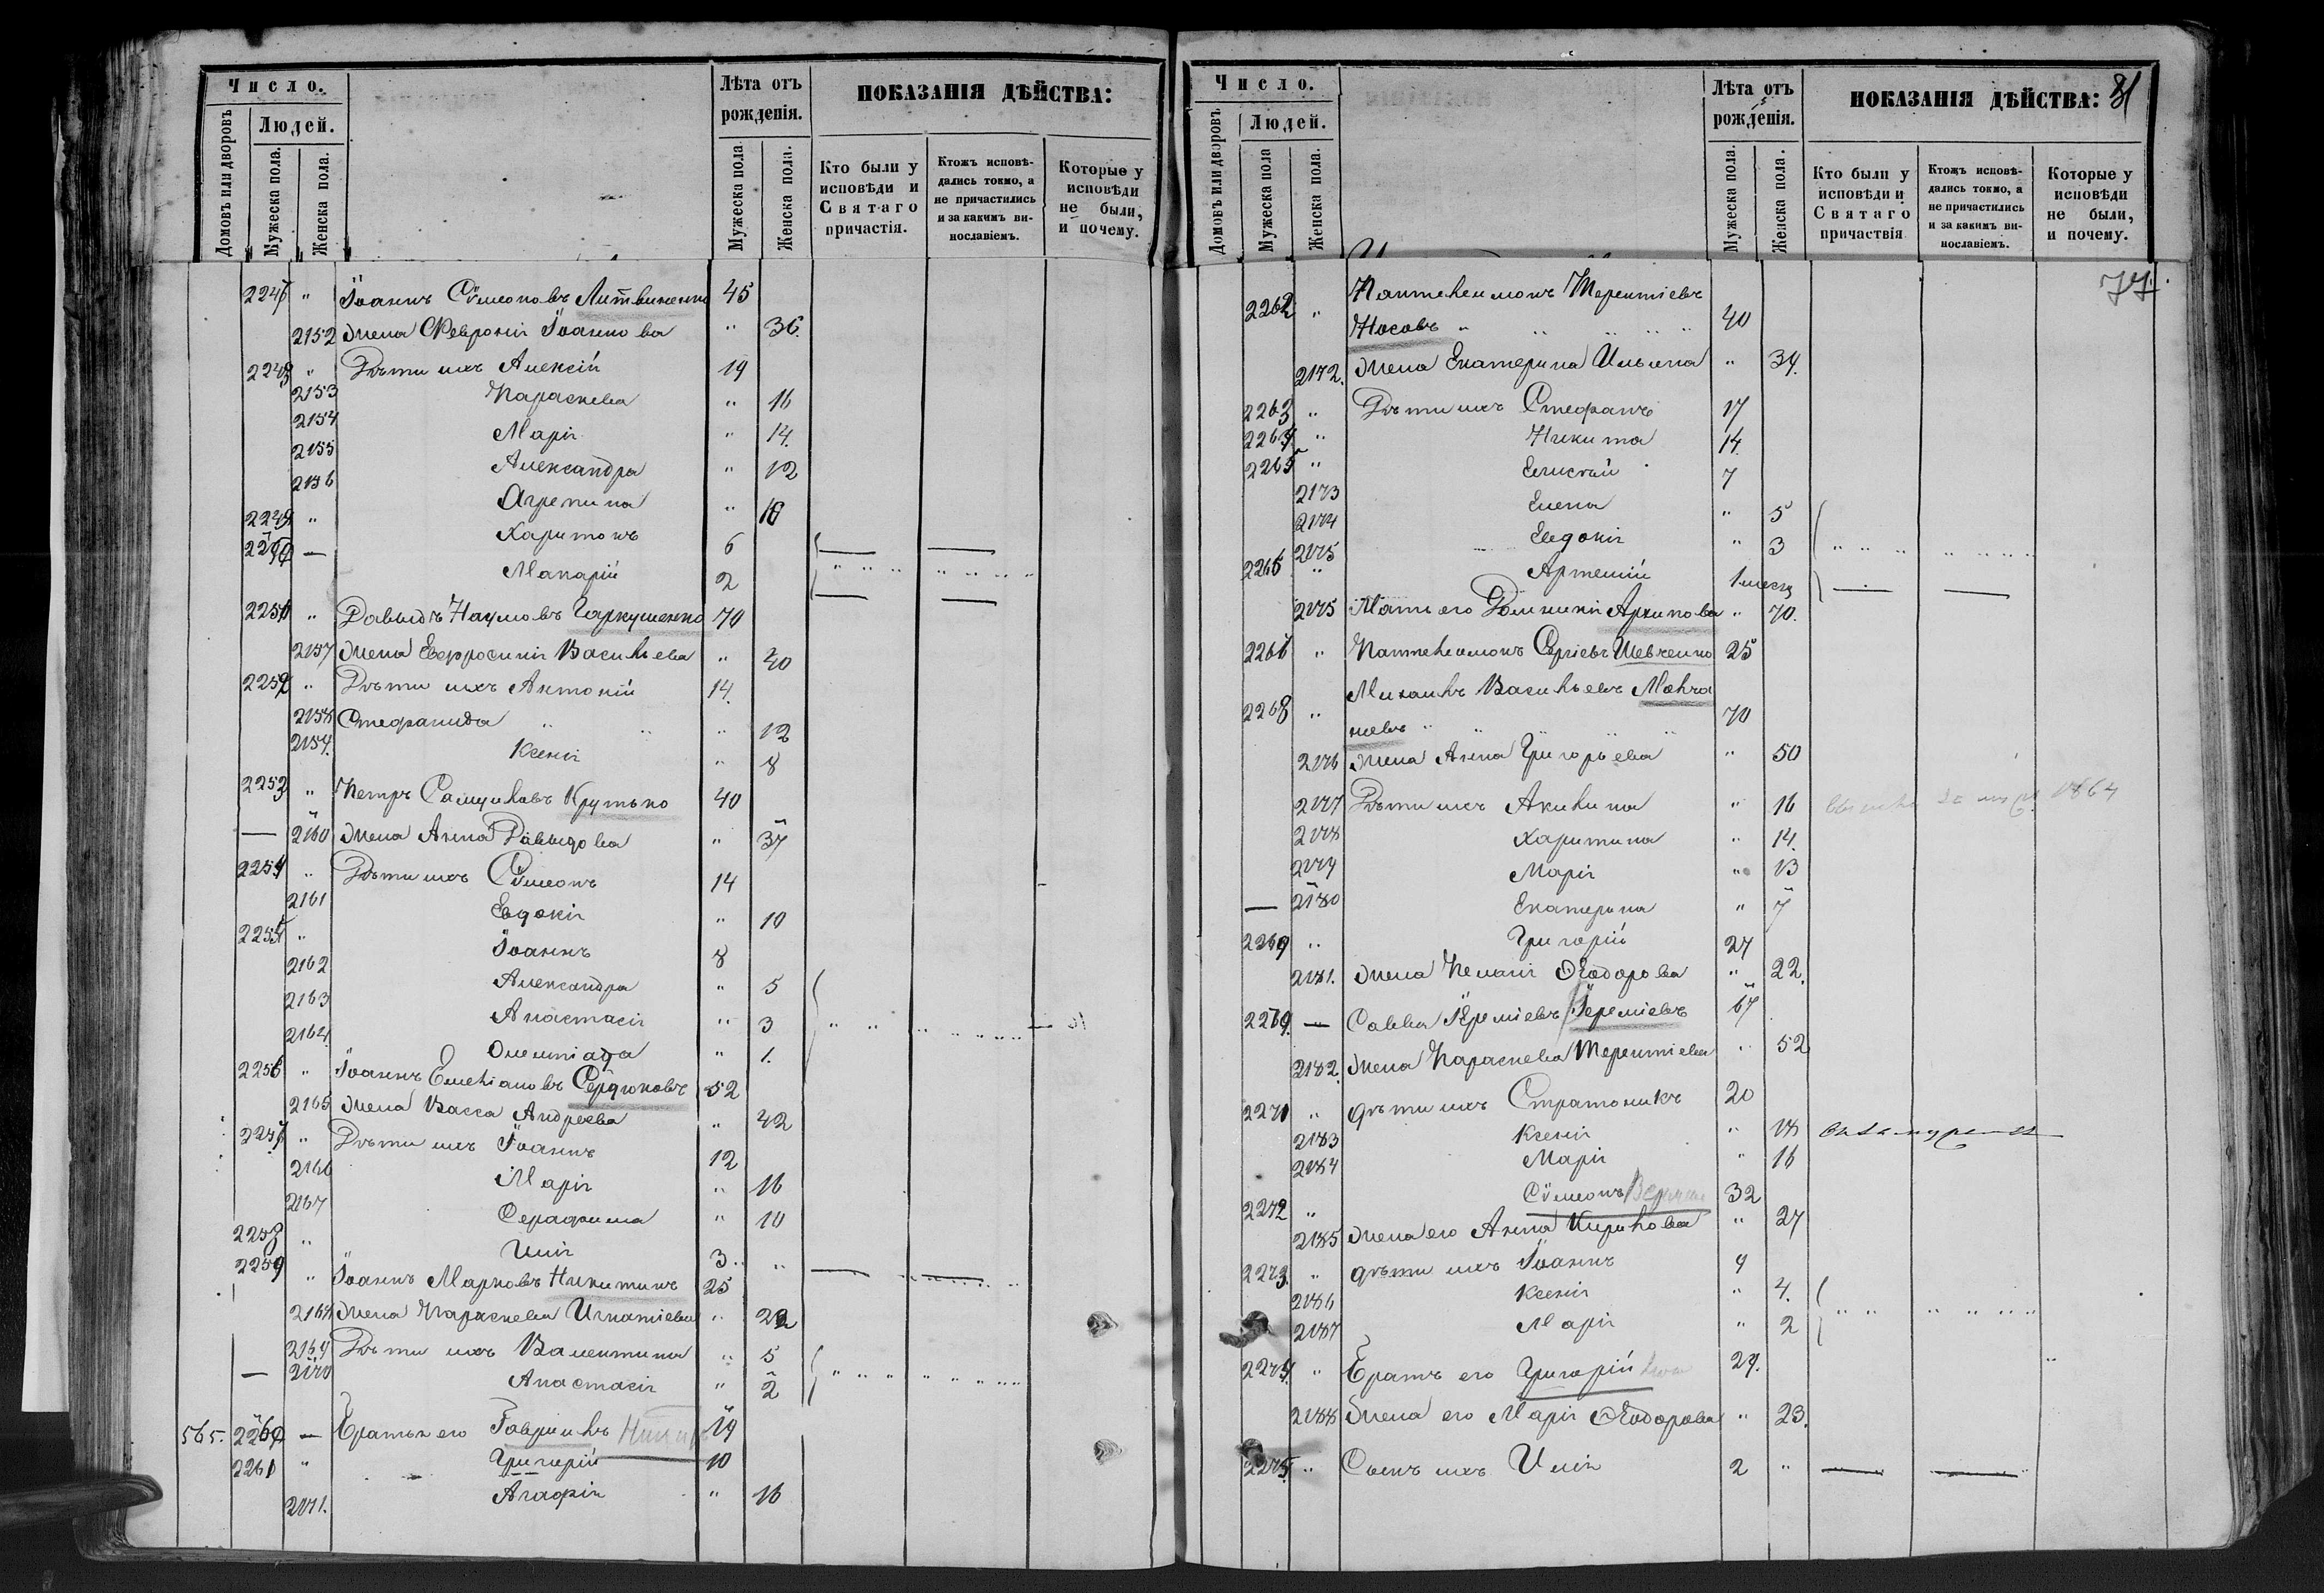 Число.
Людей.
Домовъ или дворовъ
Мужеска пола.
Женска пола.
Лѣта отъ рожденія.
Мужеска пола
Женска пола.
ПОКАЗАНІЯ ДѢЙСТВА:
Кто были у исповѣди и Святаго причастія.
Ктожъ исповѣ-
дались токмо, а
не причастились
и за какимъ ви-
нославіемъ.
Которые у
исповѣди
не были,
и почему.
2247 " Іоаннъ Сѵмеоновъ Литвиненко 45
2152 Жена Феѵронія Іоаннова " 36.
2248 " Дѣти ихъ Алексій 19
2153 Параскева " 16
2154 Марія " 14.
2155 Александра " 12
2156 Агрепина " 10
2249 " Харитонъ 6
2250 — Макарій 2
2251 " Давыдъ Наумовъ Гаркушенко 70
2157 Жена Евфросинія Васильева " 40
2252 " Дѣти ихъ Антоній 14.
2158 Стефанида " 12
2159. Ксенія " 8
2253 " Петръ Самуиловъ Крутько 40
— 2160 Жена Анна Давыдова " 37
2254 " Дѣти ихъ Сѵмеонъ 14
2161 Евдокія " 10
2255 " Іоаннъ 8
2162 Александра " 5
2163 Анастасія " 3
2164. Олимпіада " 1.
2256 " Іоаннъ Емеліановъ Сердюковъ 52
2165 Жена Васса Андреева " 42
2257 " Дѣти ихъ Іоаннъ 12
2166 Марія " 16
2167 Серафима " 10
2258 " Илія 3 "
2259 " Іоаннъ Марковъ Никитинъ 25
2168 Жена Параскева Игнатіева " 22
2169 Дѣти ихъ Валентина " 5
— 2170 Анастасія " 2
565. 2260 — Братья его Гавріилъ 19
2261 " Григорій 10
2171. Агафія " 16
Число.
Людей.
Домовъ или дворовъ.
Мужеска пола
Женска пола.
Лѣта отъ рожденія.
Мужеска пола.
Женска пола.
ПОКАЗАНІЯ ДѢЙСТВА: 81
Кто были у
исповѣди и
Святаго
причаствія
Ктожъ исповѣ-
дались токмо, а
не причастились
и за какимъ ви-
нославіемъ.
Которые у
исповѣди
не были,
и почему.
77.
2262 " Пантелеимонъ Терентіевъ
Носовъ " 40
2172. Жена Екатерина Ильина " 34.
2263 " Дѣти ихъ Стефанъ 17
2264 " Никита 14.
2265 " Елисей 7
2173 Елена " 5
2174 Евдокія " 3
2266 " Артемій 1 месяц
2175 Мать его Домникія Архипова " 70.
2267 " Пантелеимонъ Сергіевъ Шевченко 25
Михаилъ Васильевъ Молча
2268 " новъ " 70
2176 Жена Анна Григорьева " 50
2177 Дѣти ихъ Акилина " 16 1864
2178 Харитина " 14.
2179 Марія " 13
— 2180 Екатерина " 7
2269 " Григорій 27
2181. Жена Пелагія Ѳеодорова " 22.
2269. — Савва Іереміевъ Іереміевъ 67
2182. Жена Параскева Терентіева " 52
2271 " Дѣти ихъ Стратоникъ 20
2183 Ксенія " 18
2184 Марія " 16
2272 " Сѵмеонъ 32
2185 Жена его Анна Кирилова " 27
2273. " Дѣти ихъ Іоаннъ 9
2186 Ксенія " 4.
2187 Марія " 2
2274. " Братъ его Григорій 29.
2188 Жена его Марія Ѳеодорова " 23.
2275. " Сынъ ихъ Илія 2 "